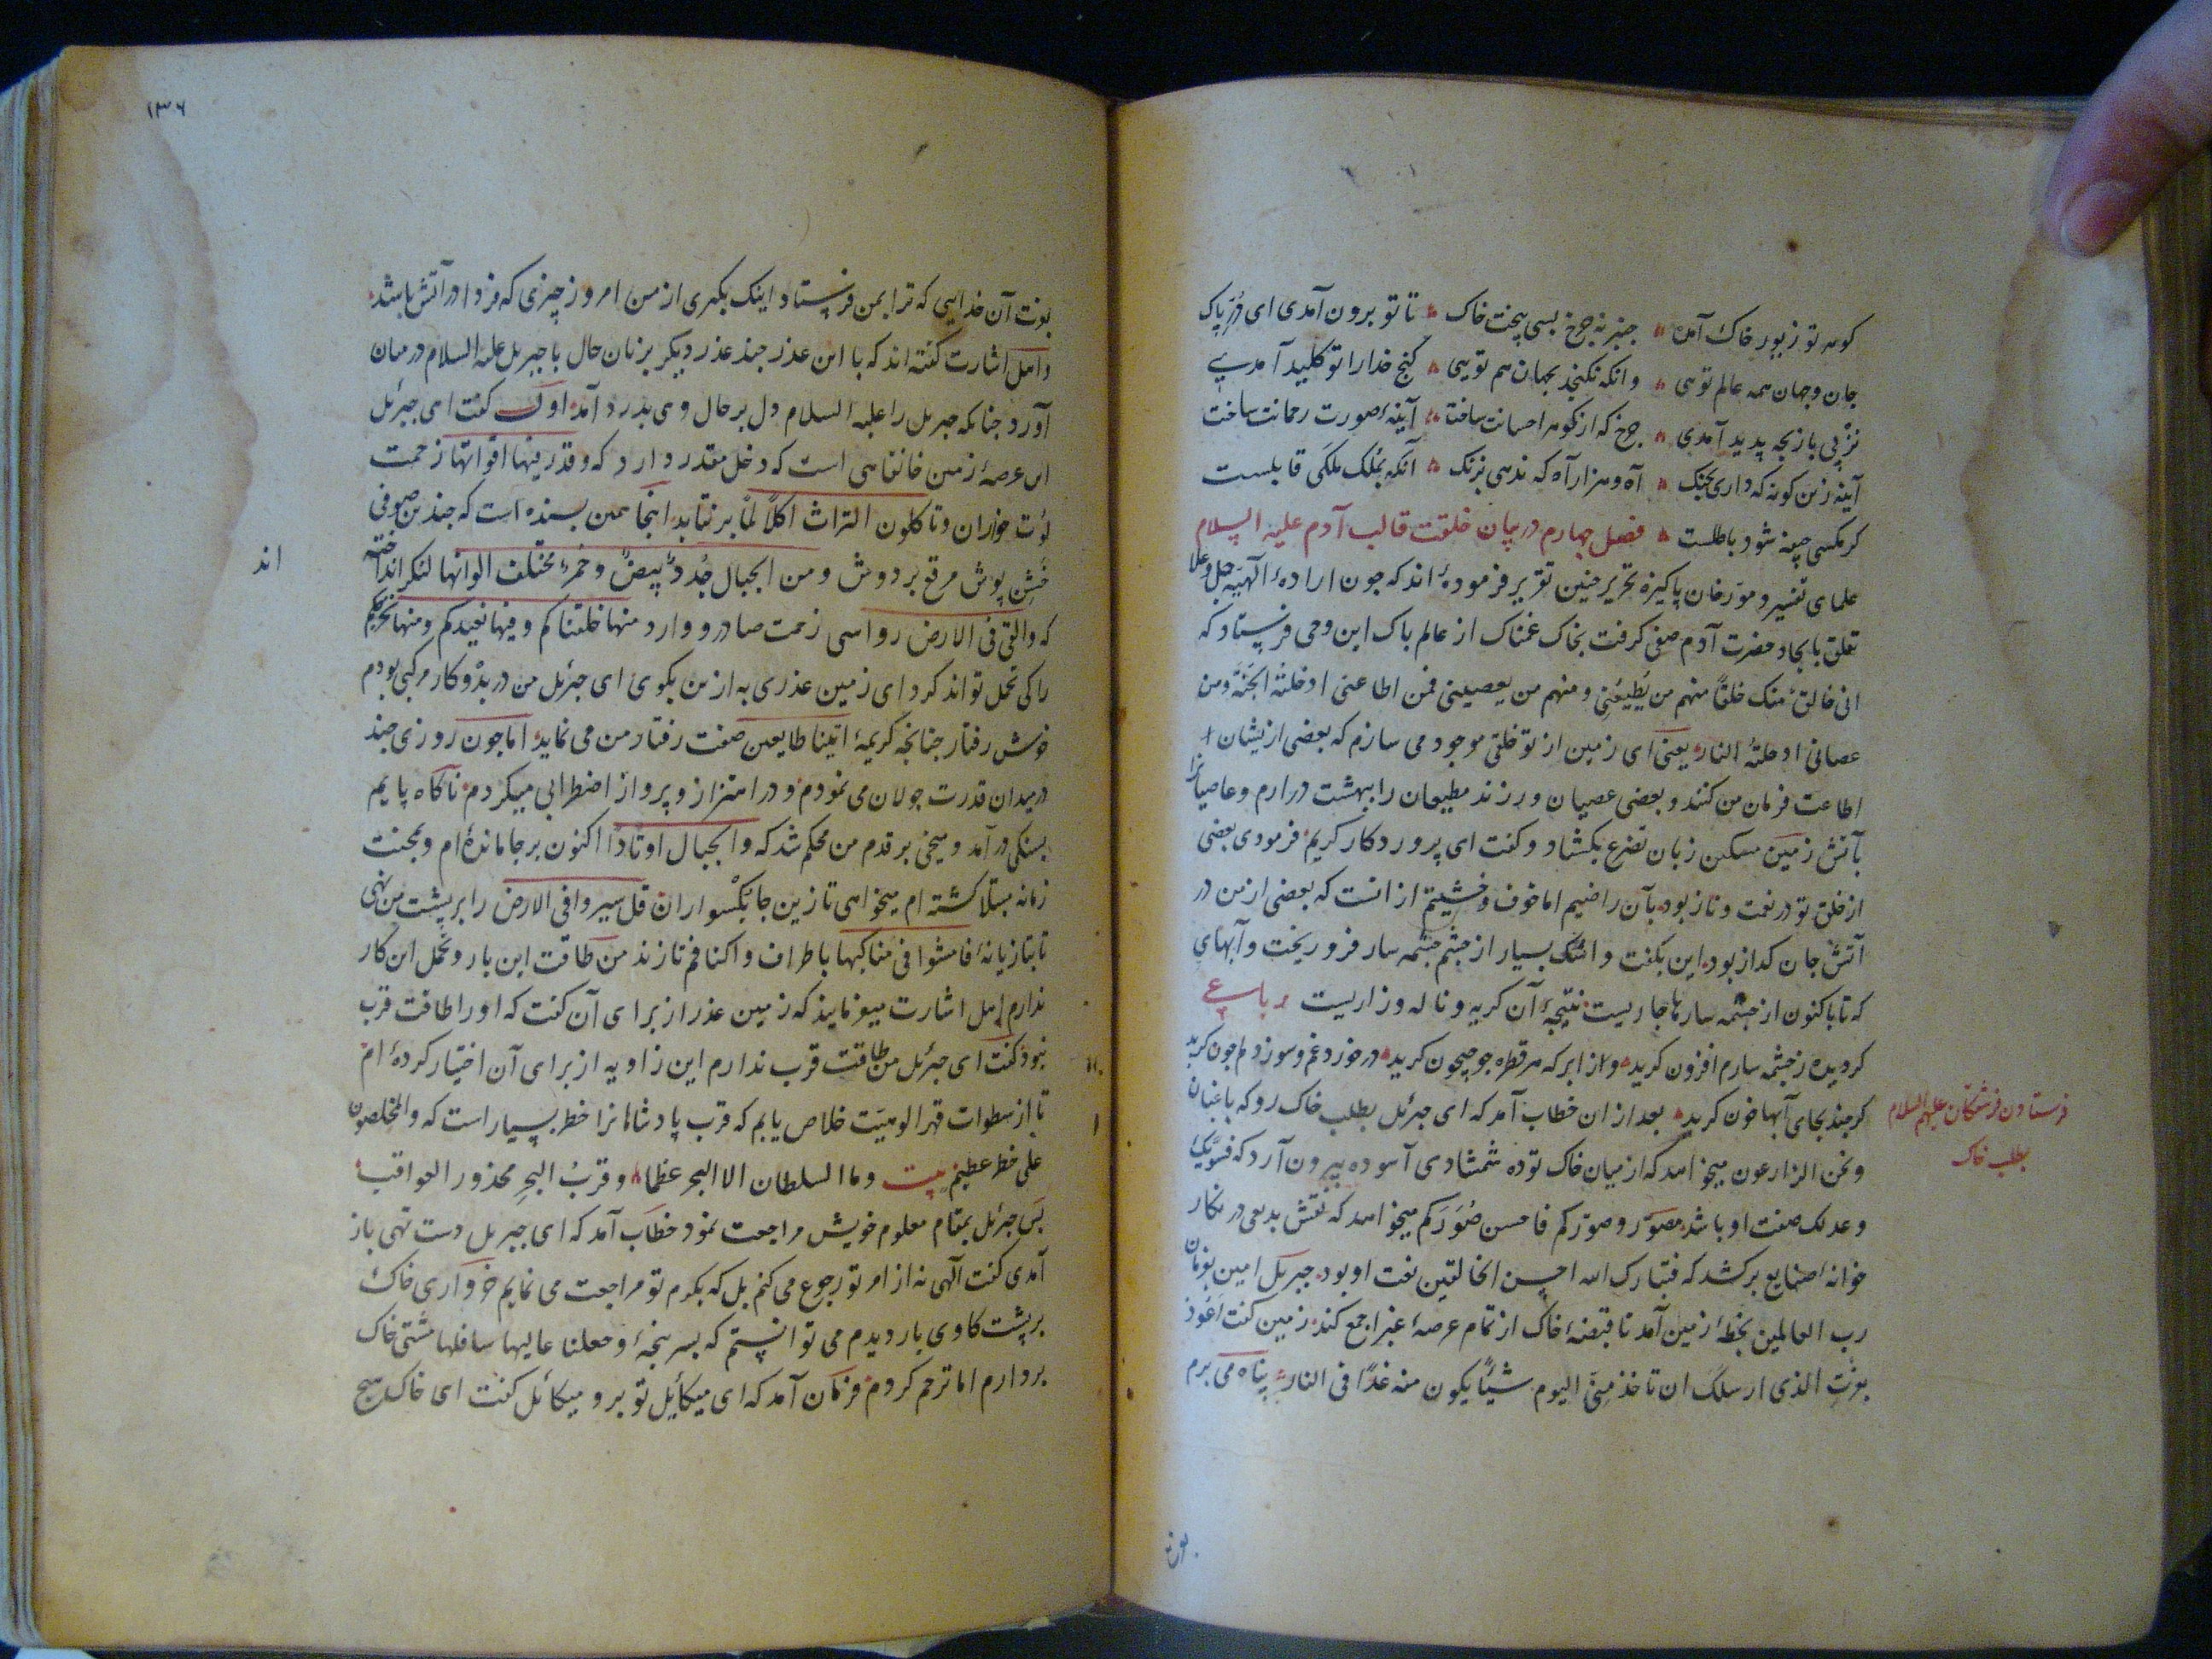 کوهر تو زیور خاک آمده جنبر نه چرخ بسی پیخت خاک تا تو برون آمدی ای دُرّ پاک
جان و جهان همه عالم تویی وانکه نکنجد بجهان هم تویی کنج خدا را تو کلید آمدیی
نز پی بازیجه پدید آمدی چرخ که از کوهر احسانت ساخت آینهٔ صورت رحمانت ساخت
آینه زین کونه که داری بجنک آه و هزار آه که ندهی بزنک آنکه بمُلک ملکی قابلست
کر مکسی صید شود باطلست فصل جهارم در بیان خلقت قالب آدم علیه السلام
علمای تفسیر و مورّخان پاکیزه تحریر جنین تقریر فرموده‌اند که جون ارادهٔ الٓهیّه جلّ وعلا
تعلق بایجاد حضرت آدم صفی کرفت بخاک غمناک از عالم پاک این وحی فرستاد که
انی خالقٌ منک خلقًا منهم من یُطیعُنی و منهم من یعصینی فمن اطاعنی ادخلتهُ الجنّةَ ومن
عصانی ادخلتهُ النار یعنی ای زمین از تو خلقی موجود می سازم که بعضی ازیشان
اطاعت فرمان من کنند و بعضی عصیان ورزند مطیعان را ببهشت درارم و عاصیانرا
بآتش زمین مسکین زبان تضرع بکشاد و کفت ای پروردکار کریم فرمودی بعضی
از خلق تو در نعمت و ناز بود بآن راضیم اما خوف و خشیتم از انست که بعضی از من در
آتش جان کداز بود این بکفت و اشک بسیار از جشم جشمه سار فرو ریخت و آبهای
که تا باکنون از جشمه سارها جاریست نتیجهٔ آن کریه و ناله و زاریست رباعی
کر دیده ز جشمه سارم افزون کرید واز ابر که هر قطره جو جیحون کرید در خورد غم و سوز دلم جون کرید
کر جند بجای آبها خون کرید بعد از ان خطاب آمد که ای جبرئل بطلب خاک رو که باغبان
ونحن الزارعون میخواهد که از میان خاک توده شمشادی آسوده بیرون آرد که فسوّیک
وعدلک صفت او باشد مصوّر و صوّرکم فاحسن صُوَرَکم میخواهد که نقش بدیعی در نکار
خوانهٔ صنایع برکشد که فتبارک الله احسن الخالقین نعت او بود جبرئل امین بفرمان
رب العالمین بخطهٔ زمین آمد تا قبضهٔ خاک از تمام عرصهٔ غبرا جمع کند زمین کفت اَعوذ
بعزّتِ الذی ارسلکَ ان تاخذ مِنّی الیوم شیئًا یکون منه غدًا فی النار پناه می برم
فرستادن فرشتکان علیهم السلام
بطلب خاک
بعزت
۱۳۶
بعزت آن خدایی که ترا بمن فرستاد اینک بکیری از من امروز چیزی که فردا در آتش باشد
و اهل اشارت کفته‌اند که با این عذر جند عذر دیکر بزبان حال با جبریل علیه السلام درمیان
آورد جنانکه جبریل را علیه السلام دل بر حال وی بدرد آمد اول کفت ای جبرئل
این عرصهٔ زمین خانقاهی است که دخل مقدر دارد که وقدر فیها اقواتها زحمت
لوت خواران وتاکلون التراث اکلًا لمًا برنتابد اینجا همین بسنده است که جندین صوفی
خشن پوش مرقع بر دوش ومن الجبال جُددٌ بیضٌ وحُمرٌ مختلف الوانها لنکر انداخته
اند
که والقی فی الارض رواسی زحمت صادر و وارد منها خلقناکم وفیها نعیدکم ومنها نخرجکم
را کی تحمل تواند کرد ای زمین عذری به ازین بکوی ای جبرئل من در بدو کار مرکبی بودم
خوش رفتار جنانجه کریمهٔ اتینا طایعین صفت رفتار من می نماید اما جون روزی جند
در میدان قدرت جولان می نمودم و در اهتزاز و پرواز اضطرابی میکردم ناکاه پایم
بسنکی درآمد و میخی بر قدم من محکم شد که والجبال اوتادًا اکنون برجا مانده‌ام و بمحنت
زمانه مبتلا کشته‌ام میخواهی تا زین جابکسواران قل سیروا فی الارض را بر پشت من نهی
تا بتازیانهٔ فامشوا فی مناکبها باطراف و اکنافم تازند من طاقت این بار و تحمل این کار
ندارم اهل اشارت میفرمایند که زمین عذر از برای آن کفت که او را طاقت قرب
نبود کفت ای جبرئل من طاقت قرب ندارم این زاویه از برای آن اختیار کرده‌ام
تا از سطوات قهر الوهیّت خلاص یابم که قرب پادشاهانرا خطر بسیار است که والمخلصون
علی خطر عظیم بیت وما السلطان الا البحر عظما وقربُ البحرِ محذور العواقب
پس جبرئل بمقام معلوم خویش مراجعت نمود خطاب آمد که ای جبریل دست تهی باز
آمدی کفت الٓهی نه از امر تو رجوع می کنم بل که بکرم تو مراجعت می نمایم خرواری خاک
بر پشت کاوی باردیدم می توانستم که بسر پنجهٔ وجعلنا عالیها سافلها مشتی خاک
بردارم اما ترحم کردم فرمان آمد که ای میکائیل تو برو میکائل کفت ای خاک هیچ